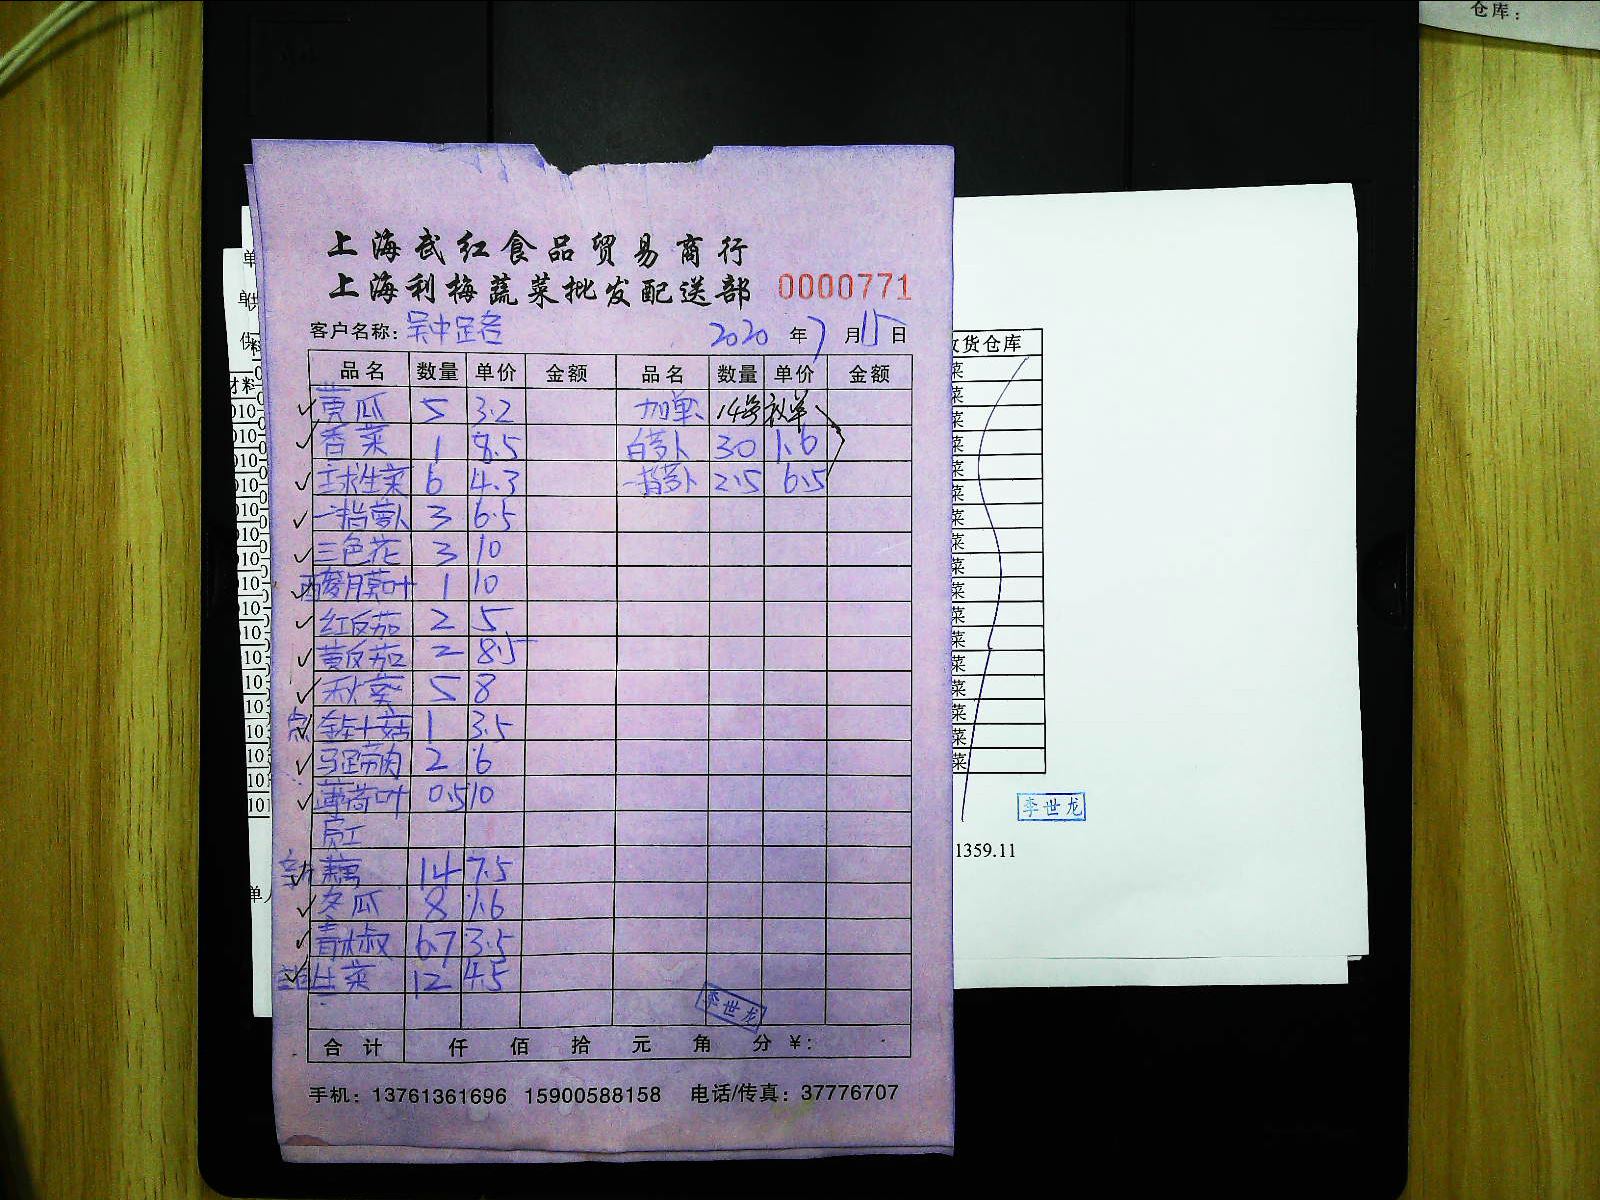 仓库：
上海武红食品贸易商行
上海利梅蔬菜批发配送部 0000771
客户名称：吴中路店 2020 年 7 月 15 日
品名 数量 单价 金额 品名 数量 单价 金额
黄瓜 5 3.2 加单 14号补单
香菜 1 8.5 白萝卜 30 1.6
球生菜 6 4.3 一指萝卜 2.5 6.5
一指萝卜 3 6.5
三色花 3 10
酸膜叶 1 10
红反茄 2 5
黄反茄 2 8.5
秋葵 5 8
金针菇 1 3.5
马蹄肉 2 6
薄荷叶 0.5 10
员工
藕 14 7.5
冬瓜 8 1.6
青椒 6.7 3.5
生菜 12 4.5
李世龙
合计 仟 佰 拾 元 角 分 ¥：
手机：13761361696 15900588158 电话/传真：37776707
收货仓库
菜
菜
菜
菜
菜
菜
菜
菜
菜
菜
菜
菜
菜
菜
菜
菜
菜
李世龙
1359.11